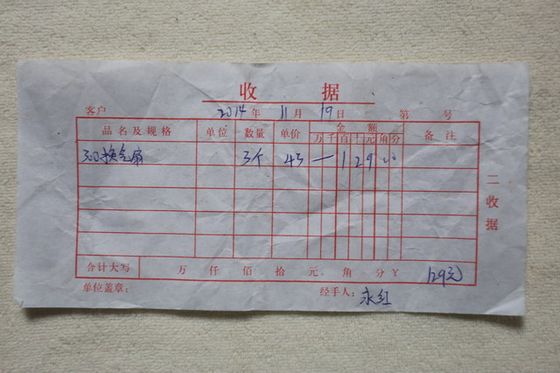 收 据
客户 2014 年 11 月 19 日 第 号
品名及规格 单位 数量 单价 金额 备注
万 千 百 十 元 角 分
300换气扇 3个 43 一 1 2 9 0 0
合计大写 万 仟 佰 拾 元 角 分 ¥ 129元
单位盖章: 经手人: 永红
二 收据